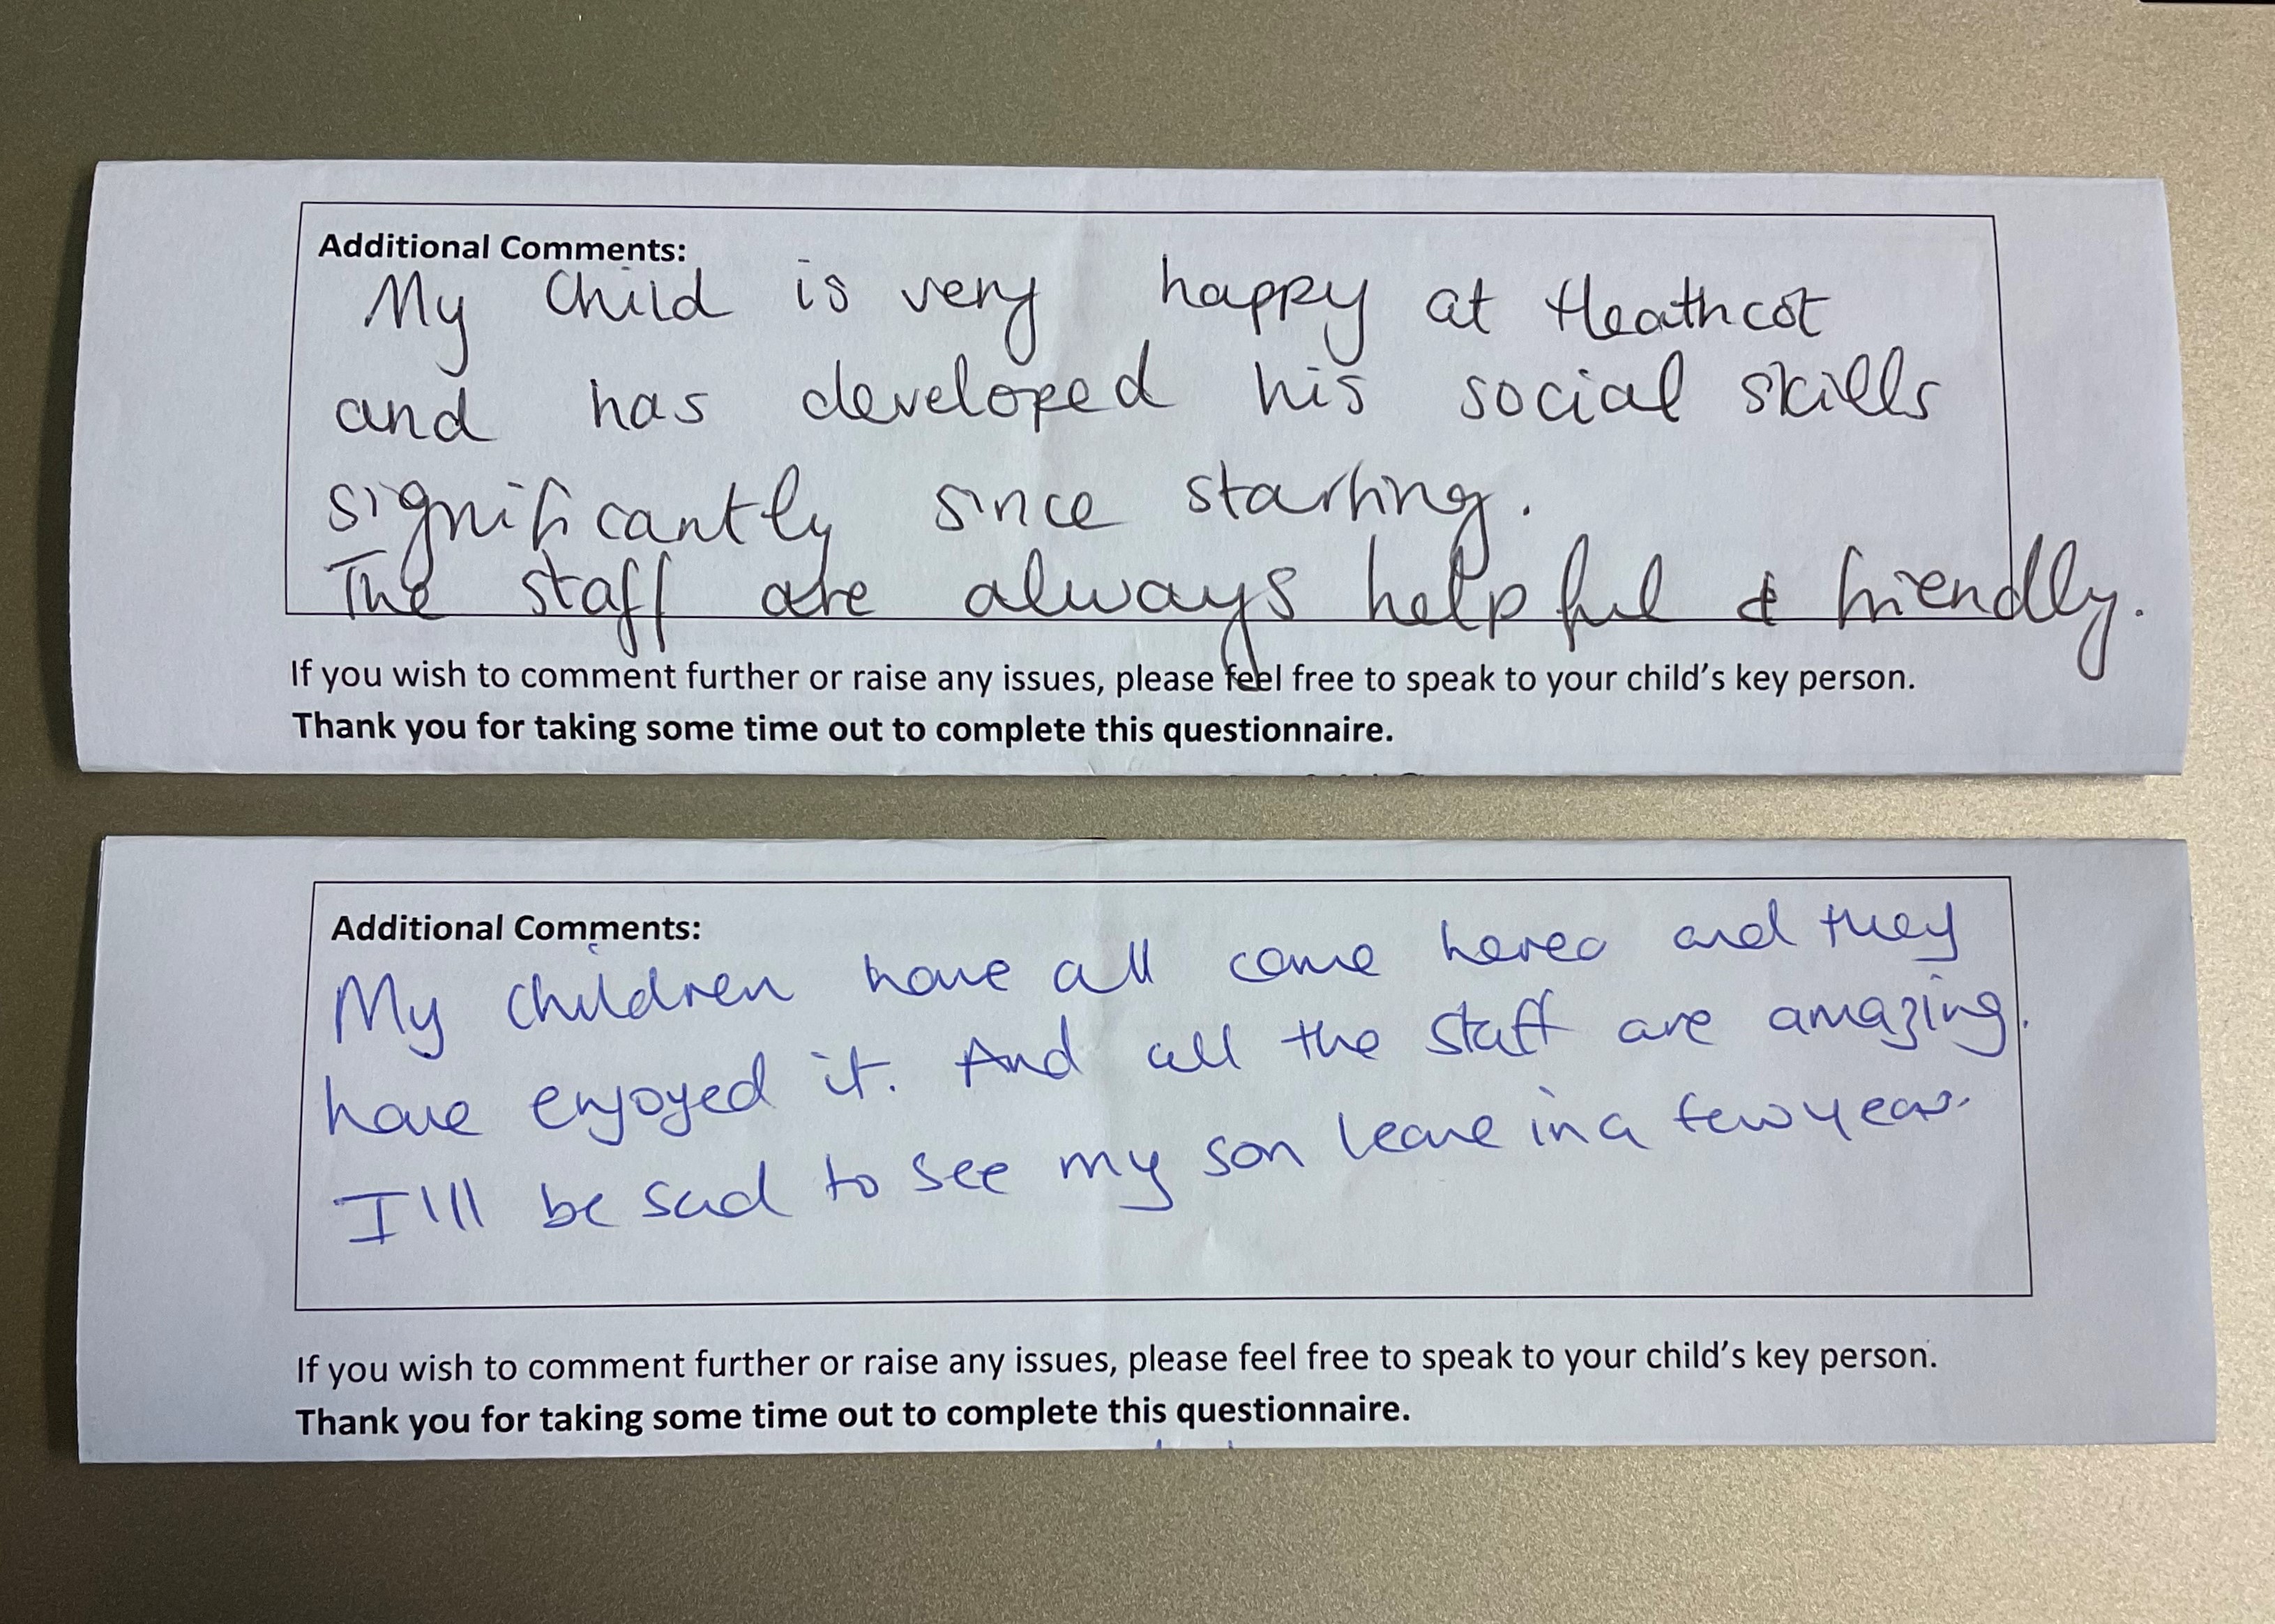 Additional Comments:
My child is very happy at Heathcot
and has developed his social skills
significantly since starting.
The staff are always helpful & friendly.
If you wish to comment further or raise any issues, please feel free to speak to your child's key person.
Thank you for taking some time out to complete this questionnaire.
Additional Comments:
My children have all come and they
have enjoyed it. And all the staff are amazing.
I'lll be sad to see my son leave in a few years.
If you wish to comment further or raise any issues, please feel free to speak to your child's key person.
Thank you for taking some time out to complete this questionnaire.